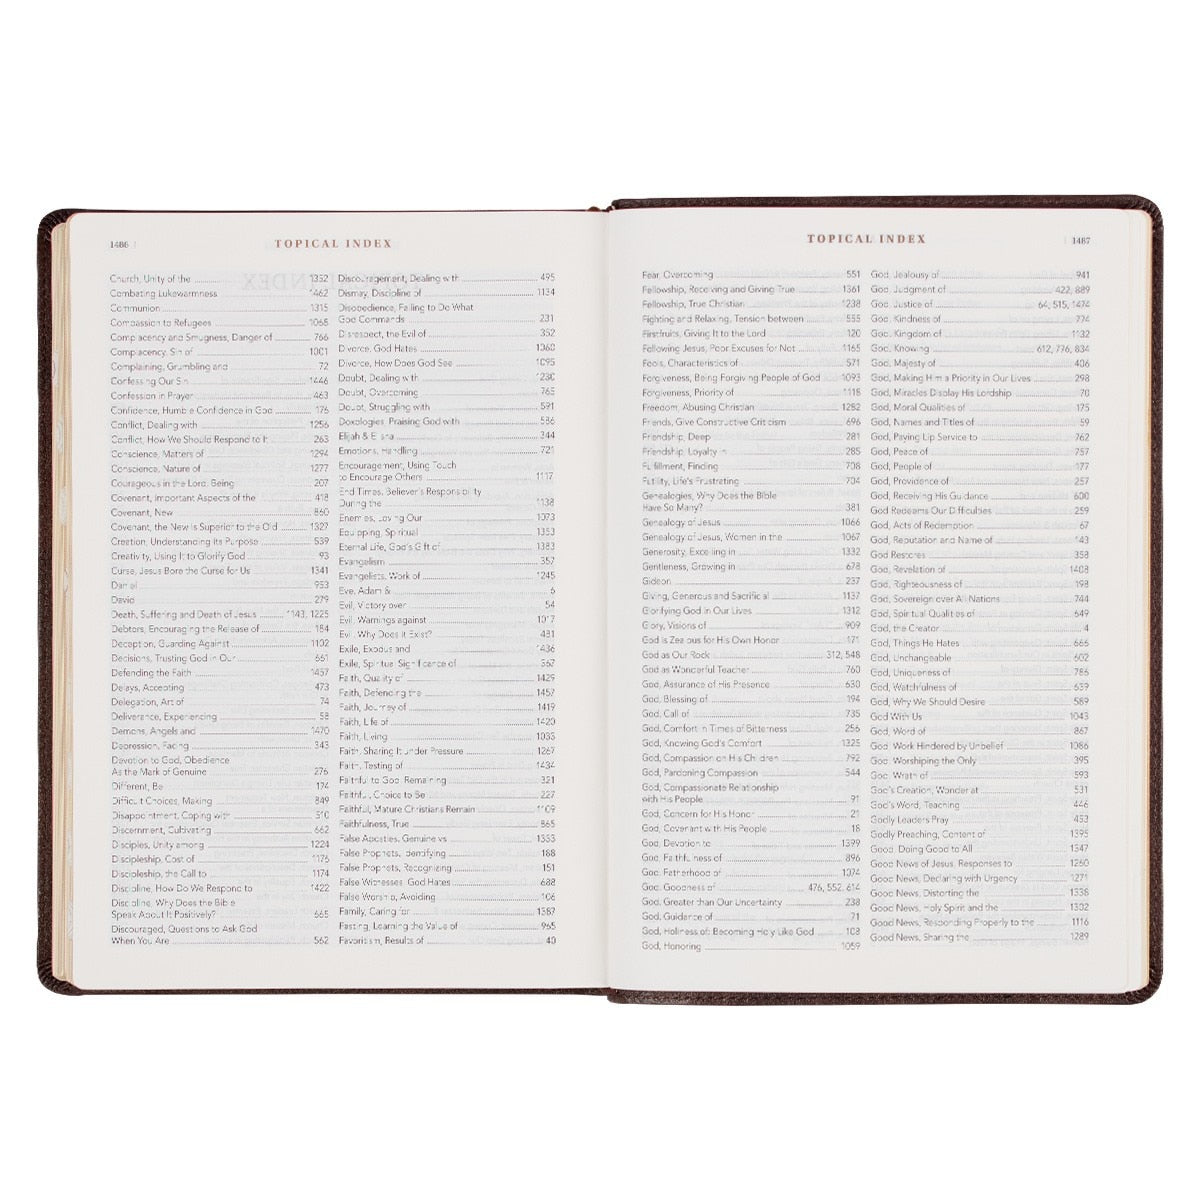 1486
TOPICAL INDEX
Church, Unity of the 1352
Combating Lukewarmness 1462
Communion 1315
Compassion to Refugees 1065
Complacency and Smugness, Danger of 766
Complacency, Sin of 1001
Complaining, Grumbling and 72
Confessing Our Sin 1446
Confession in Prayer 463
Confidence, Humble Confidence in God 176
Conflict, Dealing with 1256
Conflict, How We Should Respond to It 263
Conscience, Matters of 1294
Conscience, Nature of 1277
Courageous in the Lord, Being 207
Covenant, Important Aspects of the 418
Covenant, New 860
Covenant, the New is Superior to the Old 1327
Creation, Understanding Its Purpose 539
Creativity, Using It to Glorify God 93
Curse, Jesus Bore the Curse for Us 1341
Daniel 953
David 279
Death, Suffering and Death of Jesus 1143, 1225
Debtors, Encouraging the Release of 184
Deception, Guarding Against 1102
Decisions, Trusting God in Our 661
Defending the Faith 1457
Delays, Accepting 473
Delegation, Art of 74
Deliverance, Experiencing 58
Demons, Angels and 1470
Depression, Facing 343
Devotion to God, Obedience
As the Mark of Genuine 276
Different, Be 174
Difficult Choices, Making 849
Disappointment, Coping with 510
Discernment, Cultivating 662
Disciples, Unity among 1224
Discipleship, Cost of 1176
Discipleship, the Call to 1174
Discipline, How Do We Respond to 1422
Discipline, Why Does the Bible
Speak About It Positively? 665
Discouraged, Questions to Ask God
When You Are 562
Discouragement, Dealing with 495
Dismay, Discipline of 1134
Disobedience, Failing to Do What
God Commands 231
Disrespect, the Evil of 352
Divorce, God Hates 1060
Divorce, How Does God See 1095
Doubt, Dealing with 1230
Doubt, Overcoming 765
Doubt, Struggling with 591
Doxologies, Praising God with 586
Elijah & Elisha 344
Emotions, Handling 721
Encouragement, Using Touch
to Encourage Others 1117
End Times, Believer's Responsibility
During the 1138
Enemies, Loving Our 1073
Equipping, Spiritual 1353
Eternal Life, God's Gift of 1383
Evangelism 357
Evangelists, Work of 1245
Eve, Adam & 6
Evil, Victory over 54
Evil, Warnings against 1017
Evil, Why Does it Exist? 481
Exile, Exodus and 1436
Exile, Spiritual Significance of 367
Faith, Quality of 1429
Faith, Defending the 1457
Faith, Journey of 1419
Faith, Life of 1420
Faith, Living 1033
Faith, Sharing It under Pressure 1267
Faith, Testing of 1434
Faithful to God, Remaining 321
Faithful, Choice to Be 227
Faithful, Mature Christians Remain 1109
Faithfulness, True 865
False Apostles, Genuine vs 1333
False Prophets, Identifying 188
False Prophets, Recognizing 151
False Witnesses, God Hates 688
False Worship, Avoiding 106
Family, Caring for 1387
Fasting, Learning the Value of 965
Favoritism, Results of 40
TOPICAL INDEX
1487
Fear, Overcoming 551
Fellowship, Receiving and Giving True 1361
Fellowship, True Christian 1238
Fighting and Relaxing, Tension between 555
Firstfruits, Giving It to the Lord 120
Following Jesus, Poor Excuses for Not 1165
Fools, Characteristics of 571
Forgiveness, Being Forgiving People of God 1093
Forgiveness, Priority of 1118
Freedom, Abusing Christian 1282
Friends, Give Constructive Criticism 696
Friendship, Deep 281
Friendship, Loyalty in 285
Fulfillment, Finding 708
Futility, Life's Frustrating 704
Genealogies, Why Does the Bible
Have So Many? 381
Genealogy of Jesus 1066
Genealogy of Jesus, Women in the 1067
Generosity, Excelling in 1332
Gentleness, Growing in 678
Gideon 237
Giving, Generous and Sacrificial 1137
Glorifying God in Our Lives 1312
Glory, Visions of 909
God is Zealous for His Own Honor 171
God as Our Rock 312, 548
God as Wonderful Teacher 760
God, Assurance of His Presence 630
God, Blessing of 194
God, Call of 735
God, Comfort in Times of Bitterness 256
God, Knowing God's Comfort 1325
God, Compassion on His Children 792
God, Pardoning Compassion 544
God, Compassionate Relationship
with His People 91
God, Concern for His Honor 21
God, Covenant with His People 18
God, Devotion to 1399
God, Faithfulness of 896
God, Fatherhood of 1074
God, Goodness of 476, 552, 614
God, Greater than Our Uncertainty 238
God, Guidance of 71
God, Holiness of: Becoming Holy Like God 108
God, Honoring 1059
God, Jealousy of 941
God, Judgment of 422, 889
God, Justice of 64, 515, 1474
God, Kindness of 774
God, Kingdom of 1132
God, Knowing 612, 776, 834
God, Majesty of 406
God, Making Him a Priority in Our Lives 298
God, Miracles Display His Lordship 70
God, Moral Qualities of 175
God, Names and Titles of 59
God, Paying Lip Service to 762
God, Peace of 757
God, People of 177
God, Providence of 257
God, Receiving His Guidance 600
God Redeems Our Difficulties 259
God, Acts of Redemption 67
God, Reputation and Name of 143
God Restores 358
God, Revelation of 1408
God, Righteousness of 198
God, Sovereign over All Nations 744
God, Spiritual Qualities of 649
God, the Creator 4
God, Things He Hates 666
God, Unchangeable 602
God, Uniqueness of 786
God, Watchfulness of 639
God, Why We Should Desire 589
God With Us 1043
God, Word of 867
God, Work Hindered by Unbelief 1086
God, Worshiping the Only 395
God, Wrath of 593
God's Creation, Wonder at 531
God's Word, Teaching 446
Godly Leaders Pray 453
Godly Preaching, Content of 1395
Good, Doing Good to All 1347
Good News of Jesus, Responses to 1250
Good News, Declaring with Urgency 1271
Good News, Distorting the 1338
Good News, Holy Spirit and the 1302
Good News, Responding Properly to the 1116
Good News, Sharing the 1289